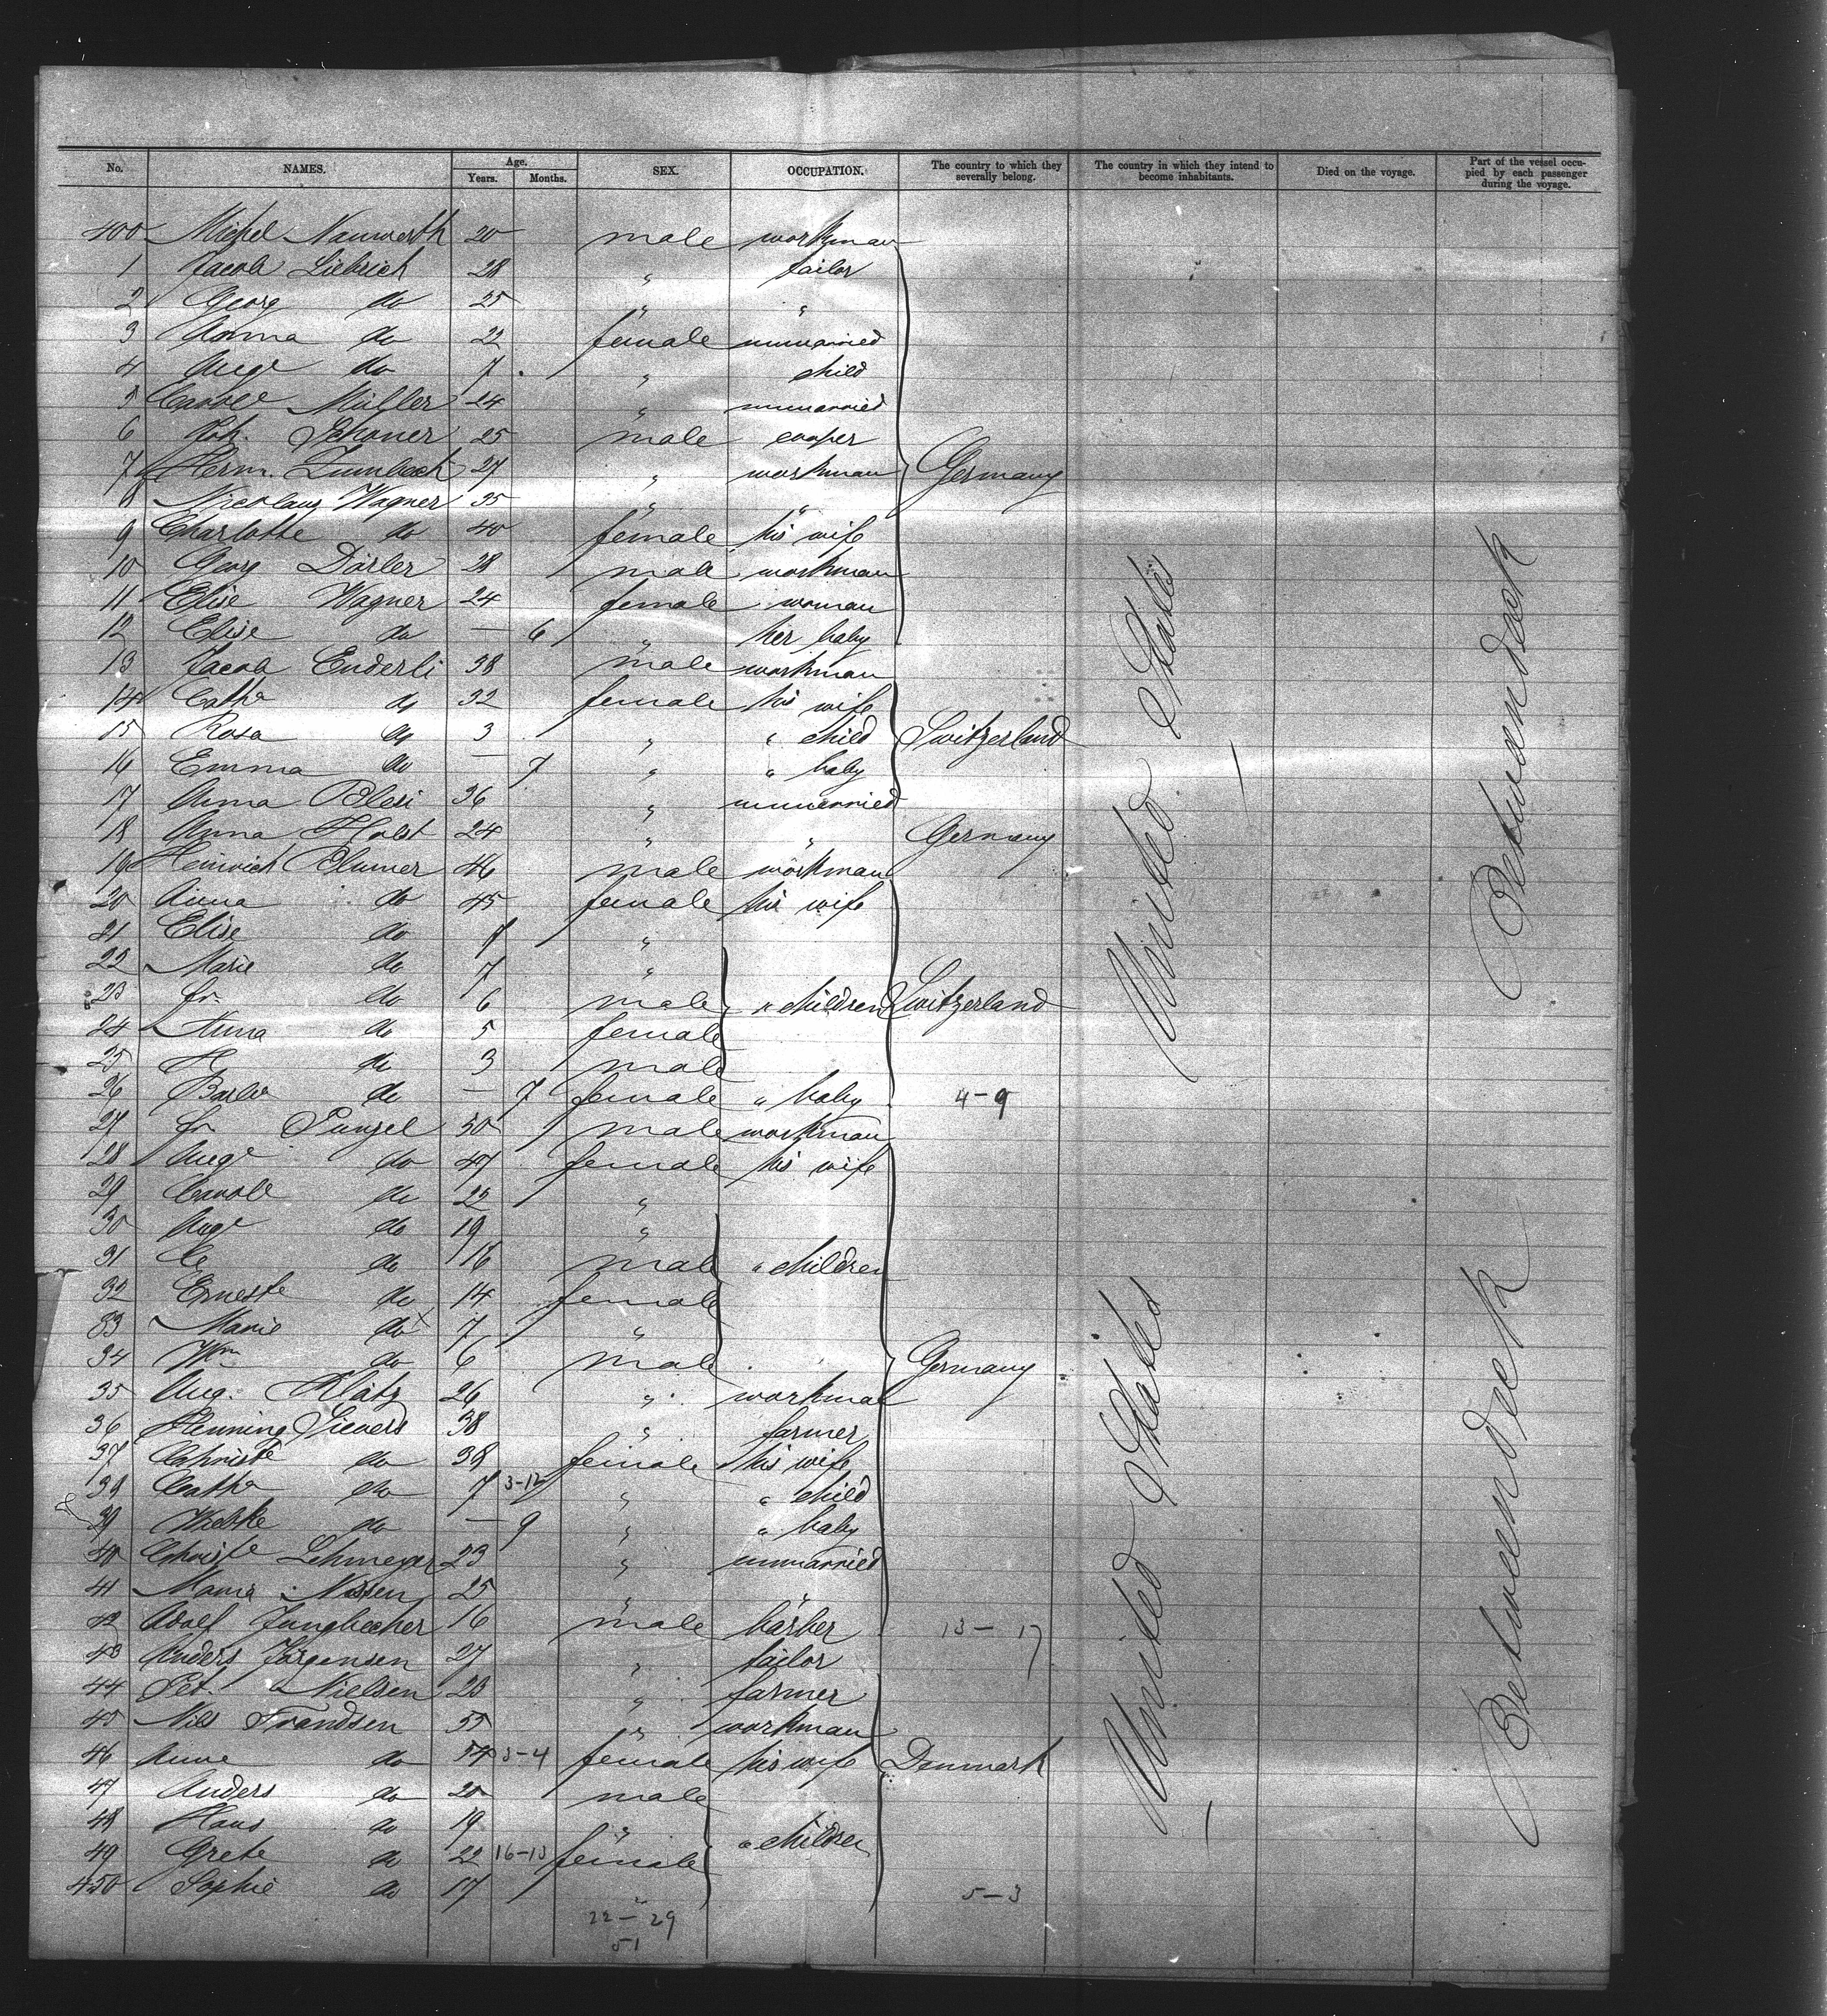 No. NAMES. Age. Years. Months. SEX. OCCUPATION. The country to which they severally belong. The country in which they intend to become inhabitants. Died on the voyage. Part of the vessel occupied by each passenger during the voyage.
400 Michel Nauwerth 20 male workman
1 Jacob Liebrich 28 " tailor
2 Georg do 25 " "
3 Anna do 22 female unmarried
4 Auge do 7 " child
5 Carole Müller 24 " unmarried
6 Joh. Schoner 25 male cooper
7 Herm. Lumbeck 27 " workman Germany
8 Nicolaus Wagner 35 " "
9 Charlotte do 40 female his wife
10 Georg Dörler 28 male workman
11 Elise Wagner 24 female woman
12 Elise do — 6 " her baby
13 Jacob Enderli 38 male workman
14 Catha do 32 female his wife
15 Rosa do 3 " " child Switzerland
16 Emma do — 7 " " baby
17 Anna Blesi 36 " unmarried
18 Anna Holst 24 " " Germany
19 Heinrich Blumer 46 male workman
20 Anna do 45 female his wife
21 Elise do "
22 Marie do 7 "
23 Fr. do 6 male " children Switzerland
24 Anna do 5 female
25 H do 3 male
26 Barba do — 7 female " baby 4-9
27 Fr Punzel 50 male workman
28 Auge do 47 female his wife
29 Carole do 22 "
30 Auge do 19 "
31 C do 16 male " children
32 Erneste do 14 female
33 Marie do x 7 "
34 Wm do 6 male Germany
35 Aug. Klätz 26 " workman
36 Henning Sievers 38 " farmer
37 Christe do 38 female his wife
38 Catha do 7 3-12 " " child
39 Wiebke do — 9 " " baby
40 Christe Lehmeyer 23 " unmarried
41 Maria Nissen 25 " "
42 Adolf Jungbecher 16 male barber 13-17
43 Anders Jörgensen 27 " tailor
44 Pet. Nielsen 23 " farmer
45 Nils Frandsen 55 " workman
46 Anne do 54 3-4 female his wife Denmark
47 Anders do 20 male
48 Hans do 19 " " children
49 Grete do 22 16-13 female
450 Sophie do 17 " 5-3
22-29
51
United States
Betweendeck
United States
Betweendeck